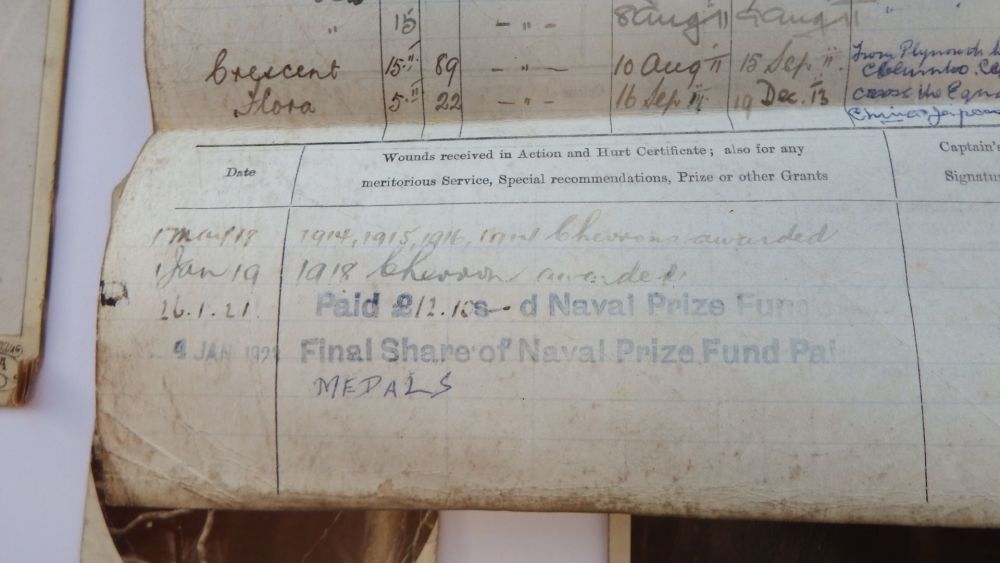 " 15 — " — 8 Aug 11 9 Aug 11 "
Crescent 15.11 89 — " — 10 Aug 11 15 Sep 11 From Plymouth
Colombo.
Flora 5.11 22 — " — 16 Sep 11 19 Dec. 13 cross the
China & Japan
Date
Wounds received in Action and Hurt Certificate; also for any
meritorious Service, Special recommendations, Prize or other Grants
Captain's
Signatu
1914, 1915, 1916, Chevrons awarded
1 Jan 19 1918 Chevron awarded
26.1.21. Paid £12.10s — d Naval Prize Fund
4 JAN 192 Final Share of Naval Prize Fund Pai
MEDALS